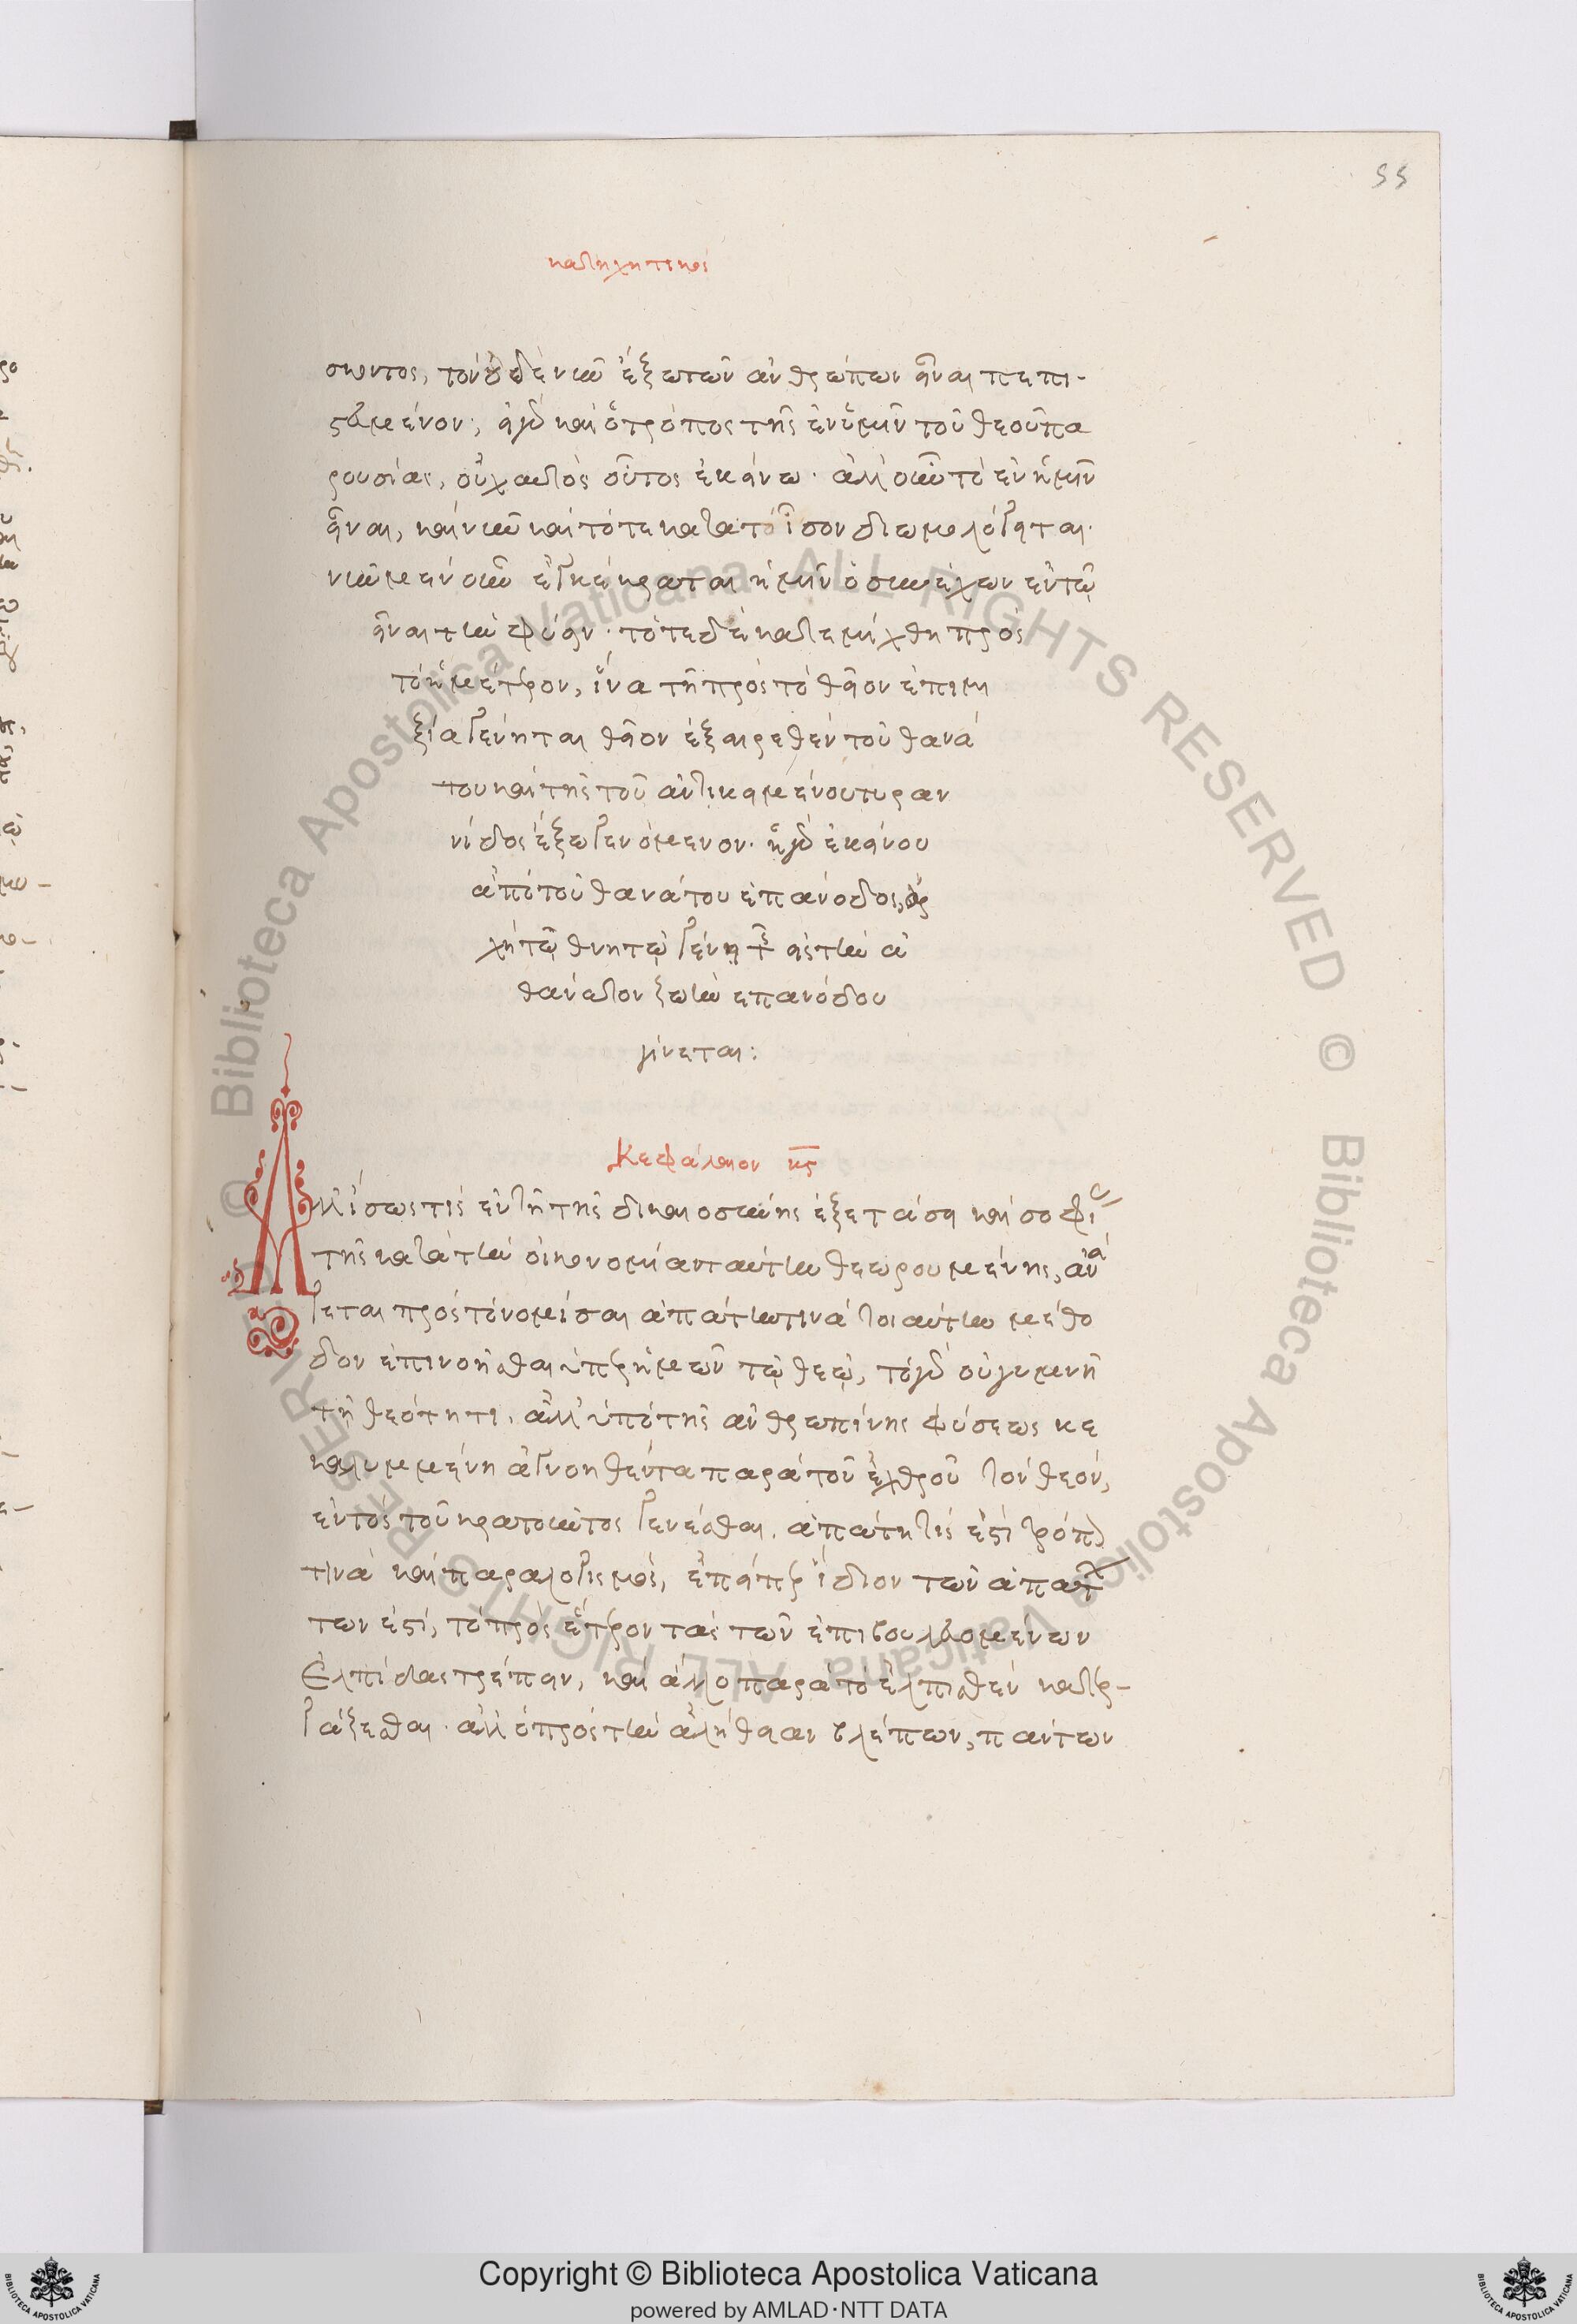 55
κατηχητικοί
σωντος, τὸν οὐδὲ νῦν ἔξω τῶν ἀνθρώπων εἶναι πεπι-
στευμένον, εἰ γὰρ καὶ ὁ τρόπος τῆς ἐν ἡμῖν τοῦ θεοῦ πα
ρουσίας, οὐχ αὐτὸς οὗτος ἐκείνω· ἀλλ οὖν τὸ ἐν ἡμῖν
εἶναι, καὶ νῦν καὶ τότε κατὰ τὸ ἴσον διωμολόγηται·
νῦν μὲν οὖν ἐγκέκραται ἡμῖν ὁ συνέχων ἐν τῷ
εἶναι τὴν φύσιν· τότε δὲ κατεμίχθη πρὸς
τὸ ἡμέτερον, ἵνα τῆ πρὸς τὸ θεῖον ἐπιμι
ξία γένηται θεῖον ἐξαιρεθὲν τοῦ θανά
του καὶ τῆς τοῦ ἀντικειμένου τυραν
νίδος ἔξω γενόμενον· ἡ γὰρ ἐκείνου
ἀπὸ τοῦ θανάτου ἐπάνοδος, ἀρ
χὴ τῷ θνητῷ γένει τῆς εἰς τὴν ἀ
θάνατον ζωὴν ἐπανόδου
γίνεται:
Κεφάλαιον κς
Ἀλλ ἴσως τις ἐν τῆ τῆς δικαιοσύνης ἐξετάσει καὶ σοφίας
τῆς κατὰ τὴν οἰκονομίαν ταύτην θεωρουμένης, ἐνά
γεται πρὸς τὸ νομίσαι ἀπάτην τινὰ τοιαύτην μέθο
δον ἐπινοῆσθαι ὑπὲρ ἡμῶν τῷ θεῷ, τὸ γὰρ οὐ γυμνῆ
τῆ θεότητι, ἀλλ ὑπὸ τῆς ἀνθρωπίνης φύσεως κε
καλυμμένη ἀγνοηθέντα παρὰ τοῦ ἐχθροῦ τὸν θεὸν,
ἐντὸς τοῦ κρατοῦντος γενέσθαι, ἀπάτη τίς ἐστὶ τρόπον
τινὰ καὶ παραλογισμὸς, ἐπείπερ ἴδιον τῶν ἀπατών
των ἐστὶ, τὸ πρὸς ἕτερον τὰς τῶν ἐπιβουλευομένων
ἐλπίδας τρέπειν, καὶ ἄλλο παρὰ τὸ ἐλπισθὲν κατερ-
γάζεσθαι· ἀλλ ὁ πρὸς τὴν ἀλήθειαν βλέπων, πάντων
Copyright © Biblioteca Apostolica Vaticana
powered by AMLAD·NTT DATA